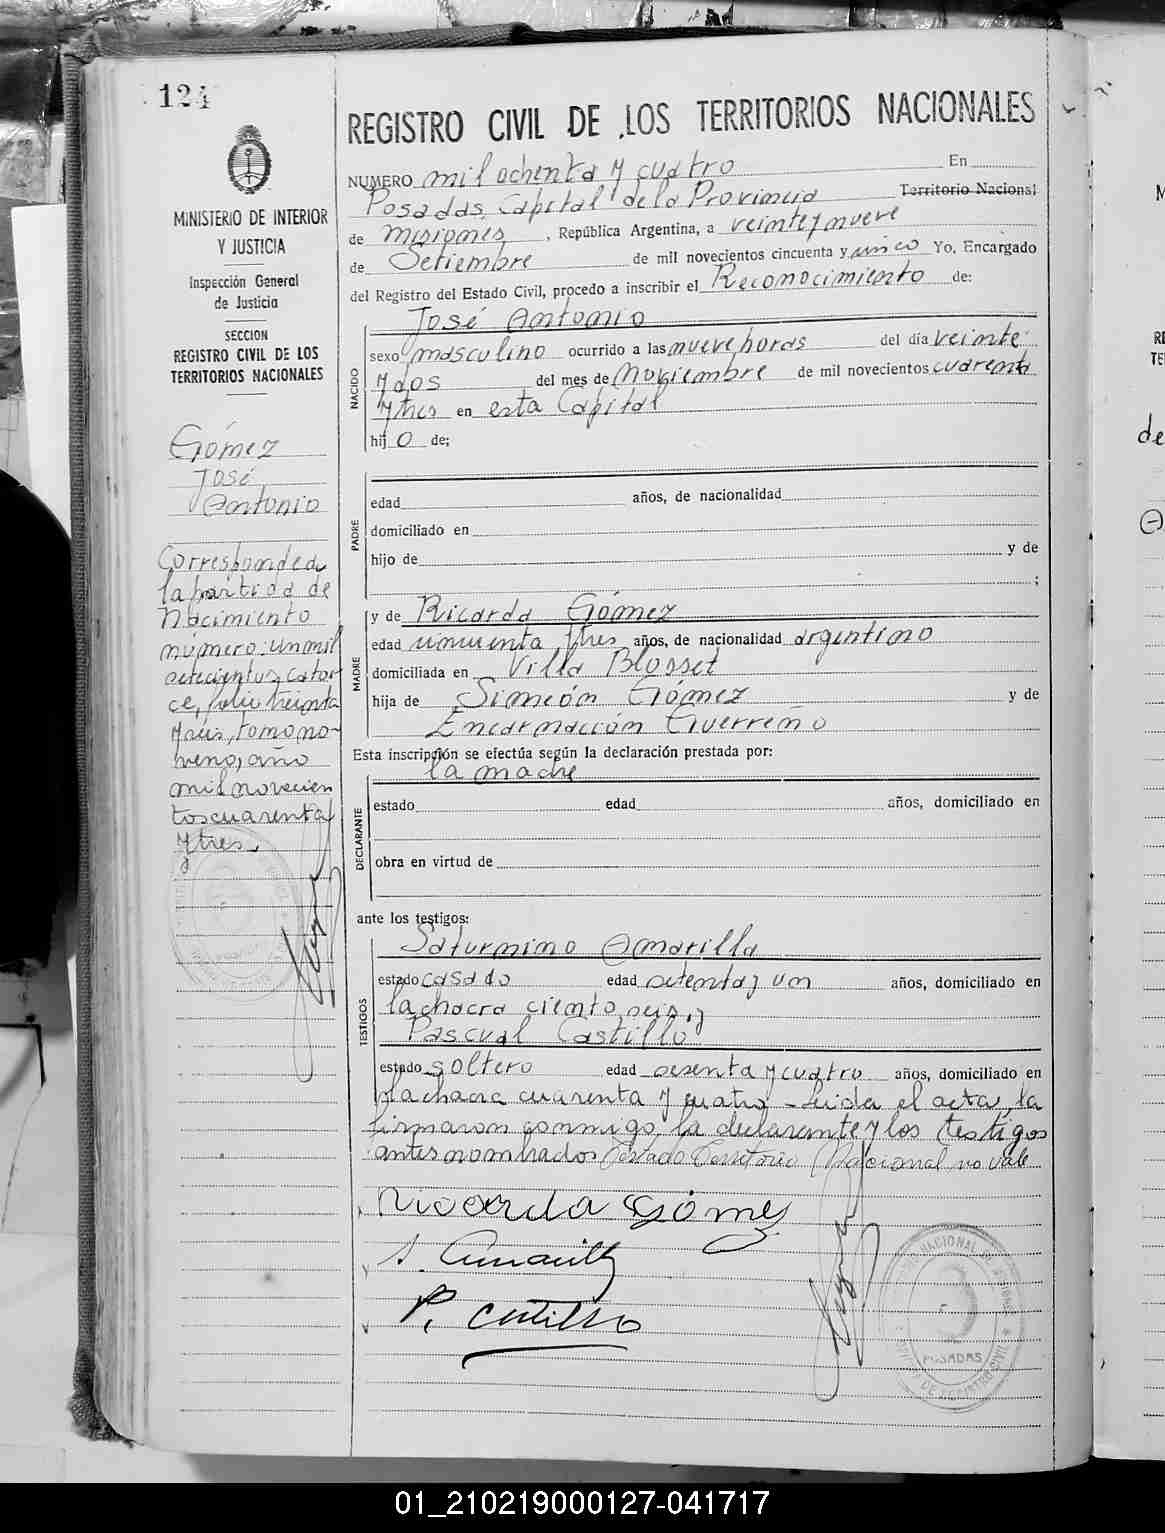 124
REGISTRO CIVIL DE LOS TERRITORIOS NACIONALES
MINISTERIO DE INTERIOR
Y JUSTICIA
Inspección General
de Justicia
SECCION
REGISTRO CIVIL DE LOS
TERRITORIOS NACIONALES
Gómez
José
Antonio
Corresponde a
la partida de
Nacimiento
número: un mil
setecientos cator-
ce, folio treinta
y seis, tomo no-
veno, año
mil novecien
tos cuarenta
y tres.
NUMERO mil ochenta y cuatro En
Posadas, Capital de la Provincia Territorio Nacional
de Misiones, República Argentina, a veinte y nueve
de Setiembre de mil novecientos cincuenta y uno Yo, Encargado
del Registro del Estado Civil, procedo a inscribir el Reconocimiento de:
NACIDO
José Antonio
sexo masculino ocurrido a las nueve horas del día veinte
y dos del mes de Noviembre de mil novecientos cuarenta
y tres en esta Capital
hijo de;
PADRE
edad años, de nacionalidad
domiciliado en
hijo de y de
;
MADRE
y de Ricarda Gómez
edad cincuenta y tres años, de nacionalidad argentino
domiciliada en Villa Blosset
hija de Simeón Gómez y de
Encarnación Guerreño
Esta inscripción se efectúa según la declaración prestada por:
la madre
DECLARANTE
estado edad años, domiciliado en
obra en virtud de
ante los testigos:
TESTIGOS
Saturnino Amarilla
estado casado edad setenta y un años, domiciliado en
la chacra ciento seis, y
Pascual Castillo
estado soltero edad sesenta y cuatro años, domiciliado en
la chacra cuarenta y cuatro - Leida el acta, la
firmaron conmigo, la declarante y los testigos
antes nombrados Testado Territorio Nacional no vale
Ricarda Gómez
S. Amarilla
P. Castillo
POSADAS
01_210219000127-041717